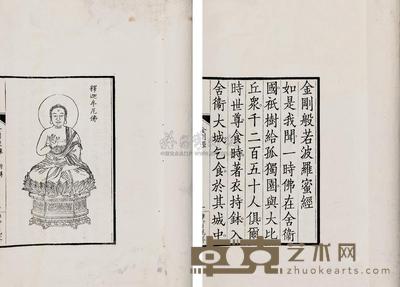 金剛般若波羅蜜經
如是我聞一時佛在舍衞
國祇樹給孤獨園與大比
丘衆千二百五十人俱爾
時世尊食時著衣持鉢入
舍衞大城乞食於其城中
釋迦牟尼佛
卓克艺术网
zhuokearts.com